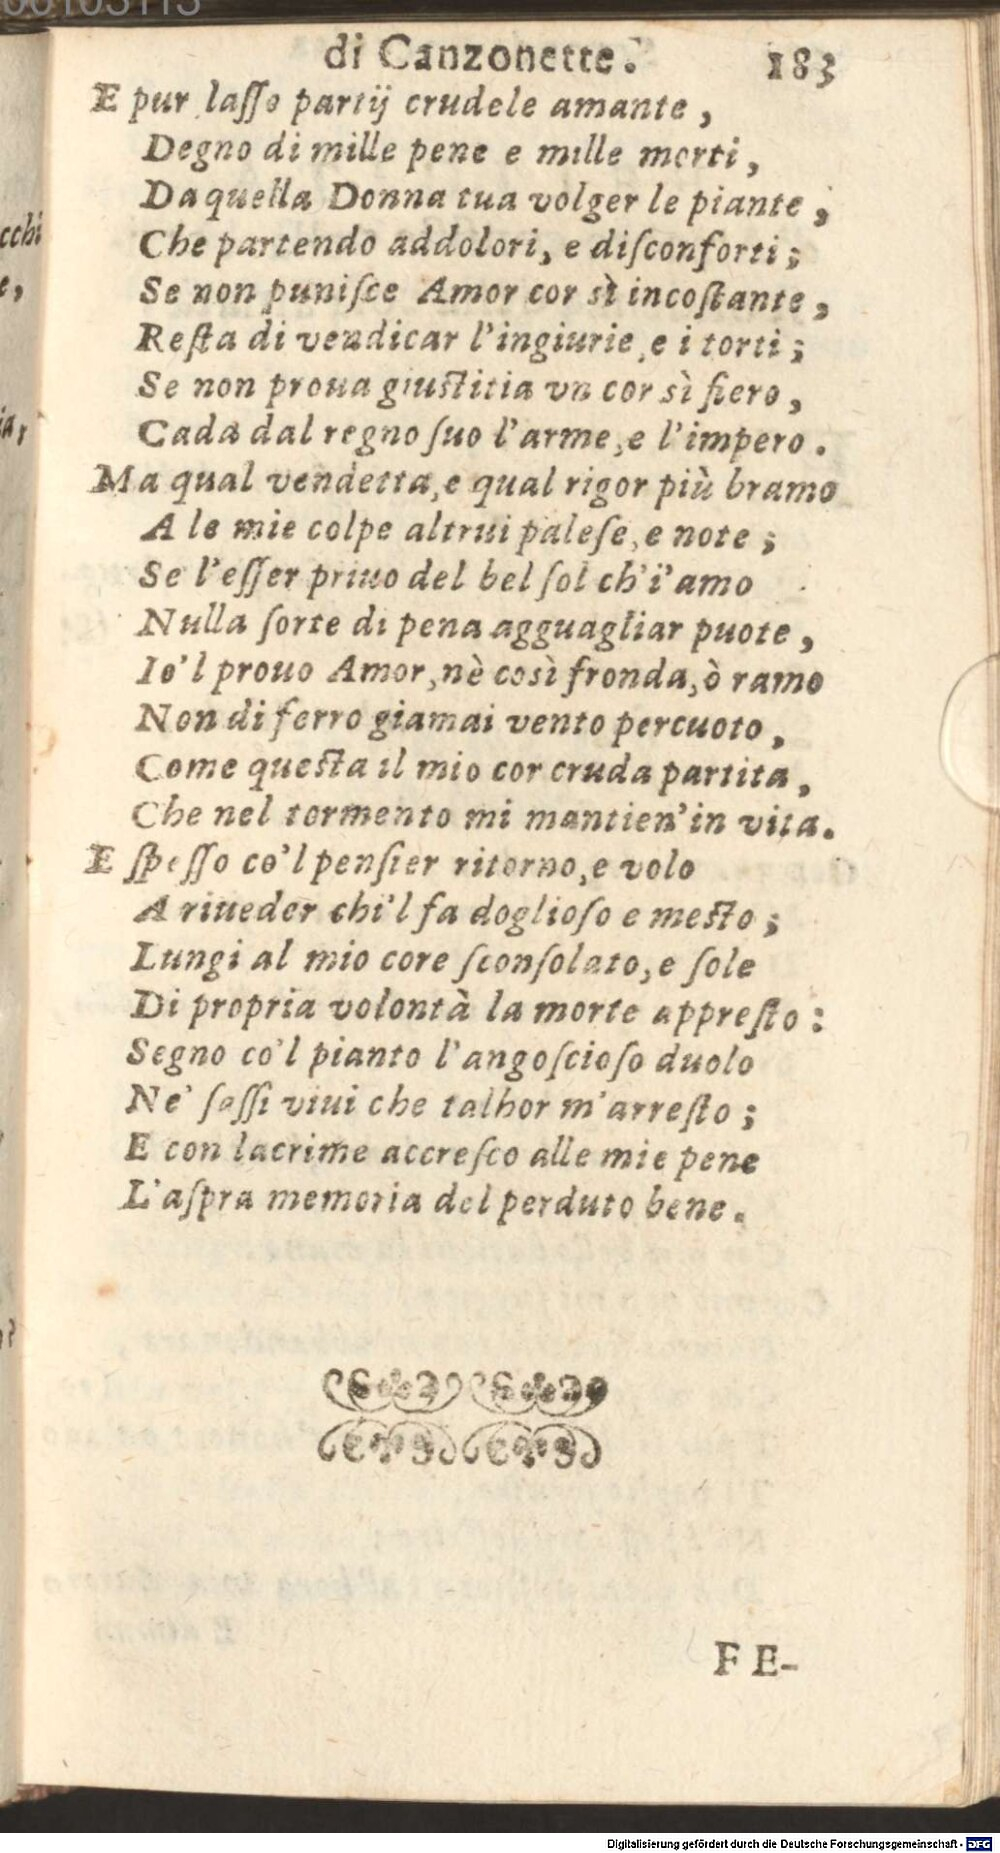 di Canzonette. 183
E pur lasso partij crudele amante,
Degno di mille pene e mille morti,
Da quella Donna tua volger le piante,
Che partendo addolori, e disconforti;
Se non punisce Amor cor sì incostante,
Resta di vendicar l'ingiurie, e i torti;
Se non proua giustitia vn cor sì fiero,
Cada dal regno suo l'arme, e l'impero.
Ma qual vendetta, e qual rigor più bramo
A le mie colpe altrui palese, e note;
Se l'esser priuo del bel sol ch'i' amo
Nulla sorte di pena agguagliar puote,
Io'l prouo Amor, nè così fronda, ò ramo
Non di ferro giamai vento percuoto,
Come questa il mio cor cruda partita,
Che nel tormento mi mantien' in vita.
E spesso co'l pensier ritorno, e volo
A riueder chi'l fa doglioso e mesto;
Lungi al mio core sconsolato, e sole
Di propria volontà la morte appresto:
Segno co'l pianto l'angoscioso duolo
Ne' sassi viui che talhor m'arresto;
E con lacrime accresco alle mie pene
L'aspra memoria del perduto bene.
FE-
Digitalisierung gefördert durch die Deutsche Forschungsgemeinschaft - DFG